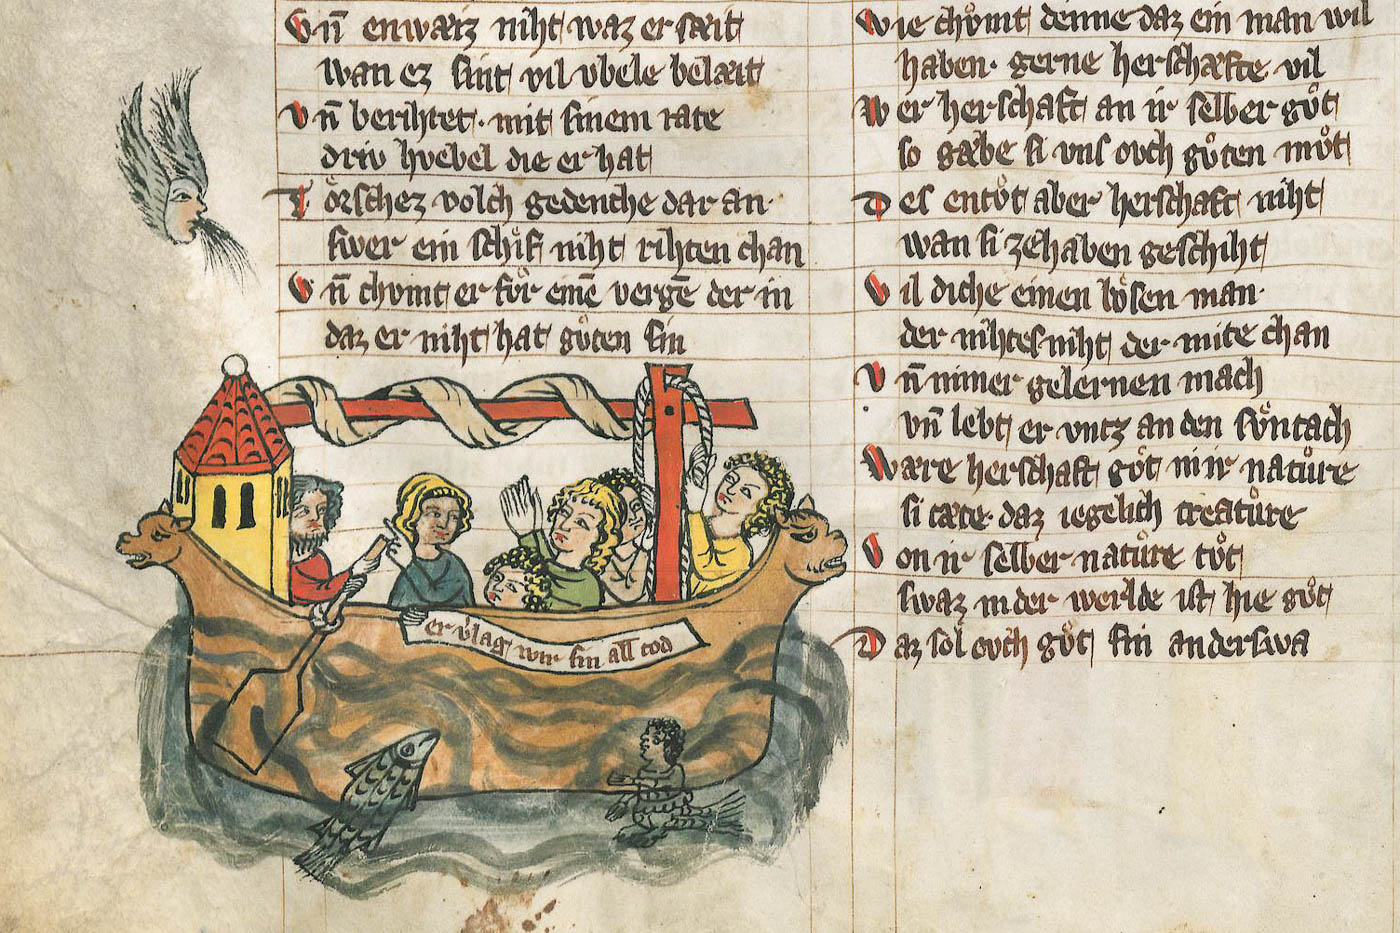 Vn̄ enwæiz niht waz er sæit
wan ez sint vil vbele belæit
Vn̄ berihtet· mit sinem rate
driv hvebel die er hat
Toͤrschez volch gedenche dar an·
swer ein schif niht rihten chan
Vn̄ chvmt er fvͤr einē vergē der in
daz er niht hat gvͦten sin
er vlag wir sin all tod
Wie chvͦmt denne daz ein man wil
haben· gerne herschæfte vil
Wer herschaft an ir selber gvͦt
so gæbe si vns ovch gvͦten mvͦt
Des entvͦt aber herschaft niht
wan si zehaben geschiht
Vil diche einen boͤsen man·
der nihtesniht der mite chan
Vn̄ nimer gelernen mach
vn̄ lebt er vntz an den svͦntach
Wære herschaft gvͦt in ir natvͦre
si tæte· daz iegelich creatvͦre
Von ir selber natvͦre tvͦt
swaz in der werlde ist hie gvͦt
Daz sol ovch gvͦt sin anderswa